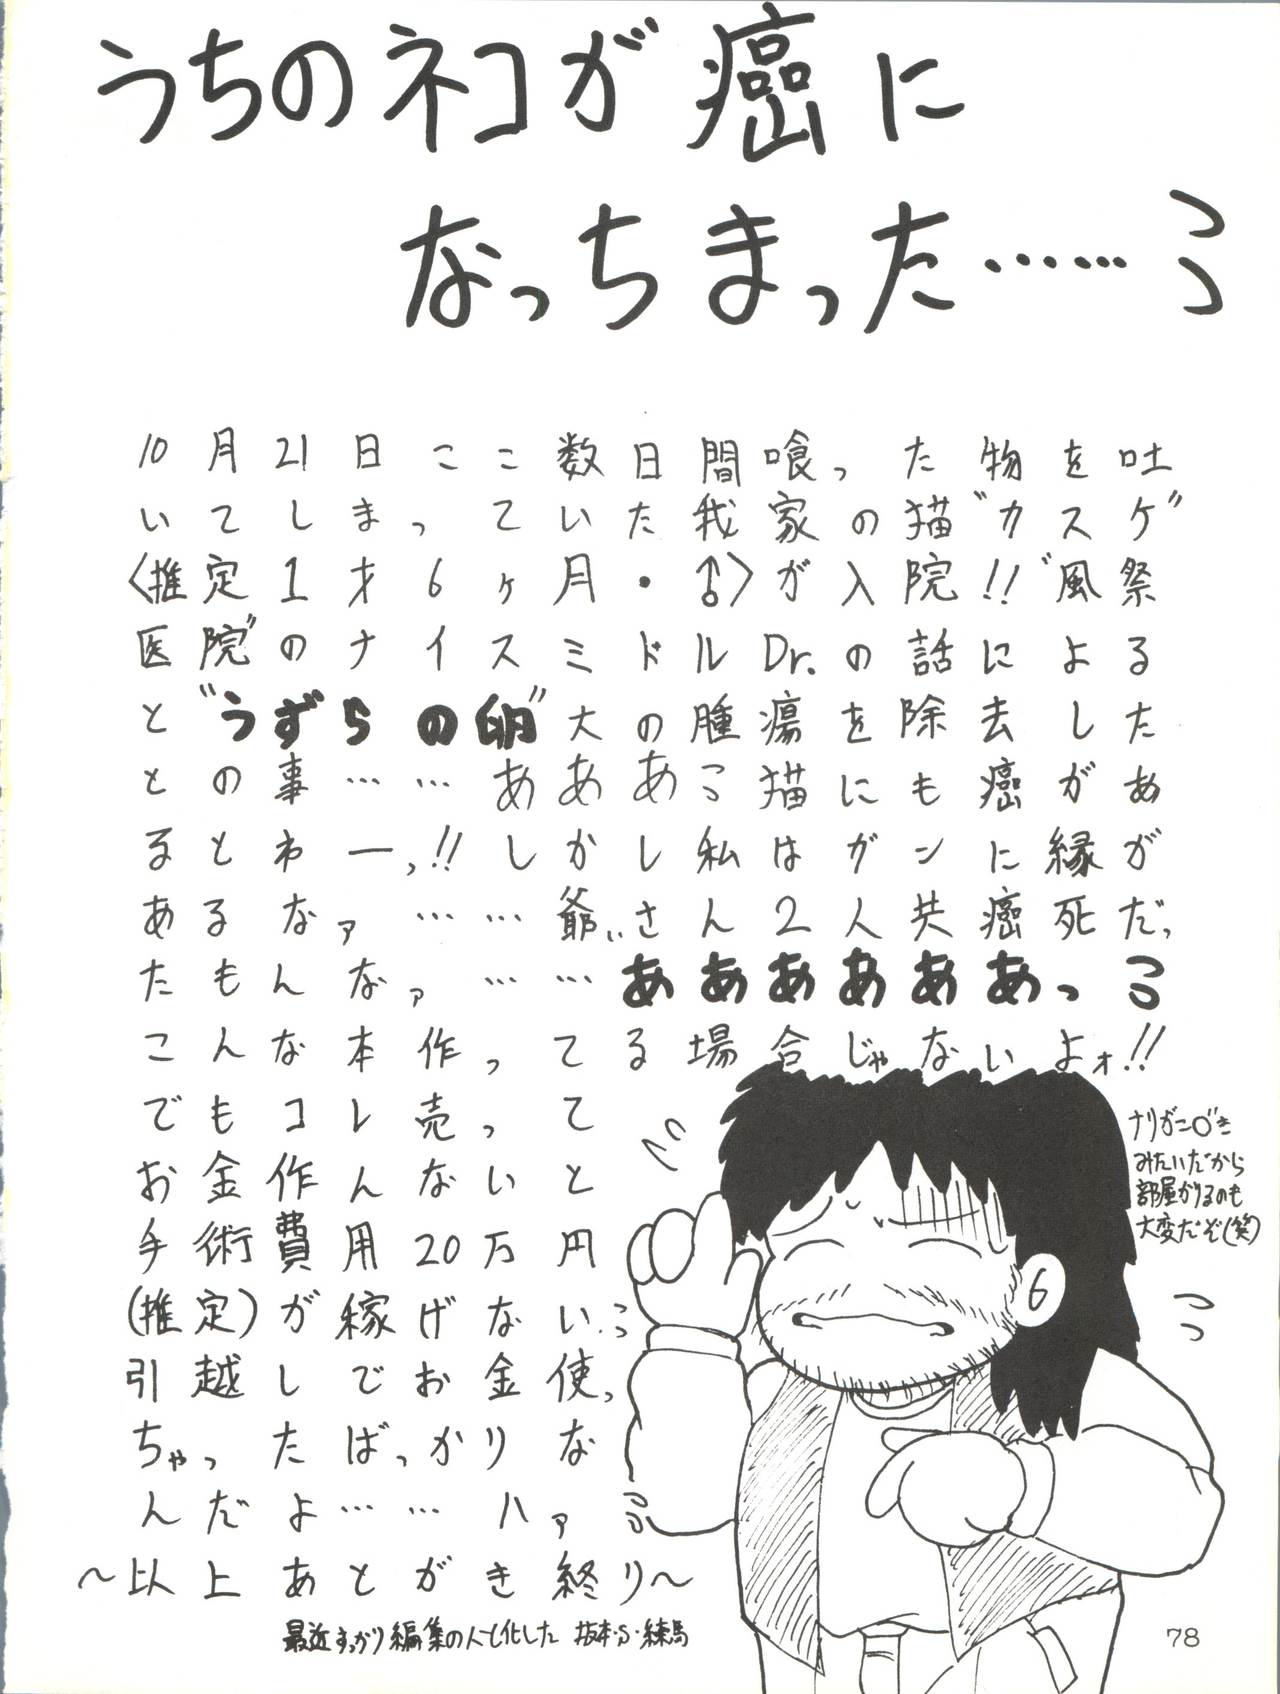 うちのネコが癌に
なっちまった……
10月21日ここ数日間喰った物を吐
いてしまっていた我家の猫"カスケ"
〈推定1才6ヶ月・♂〉が入院!!"風祭
医院"のナイスミドルDr.の話による
と"うずらの卵"大の腫瘍を除去した
との事……あああこ猫にも癌があ
るとわーっ!!しかし私はガンに縁が
あるなァ……爺ぃさん2人共癌死だっ
たもんなァ……ああああああっ
こんな本作ってる場合じゃないよォ!!
でもコレ売って
お金作んないと
手術費用20万円
(推定)が稼げない
引越しでお金使っ
ちゃったばっかりな
んだよ……ハァ
～以上あとがき終り～
ナリがニ○"き
みたいだから
部屋かりるのも
大変だぞ(笑)
最近すっかり編集の人と化した 坂本・S・練馬
78